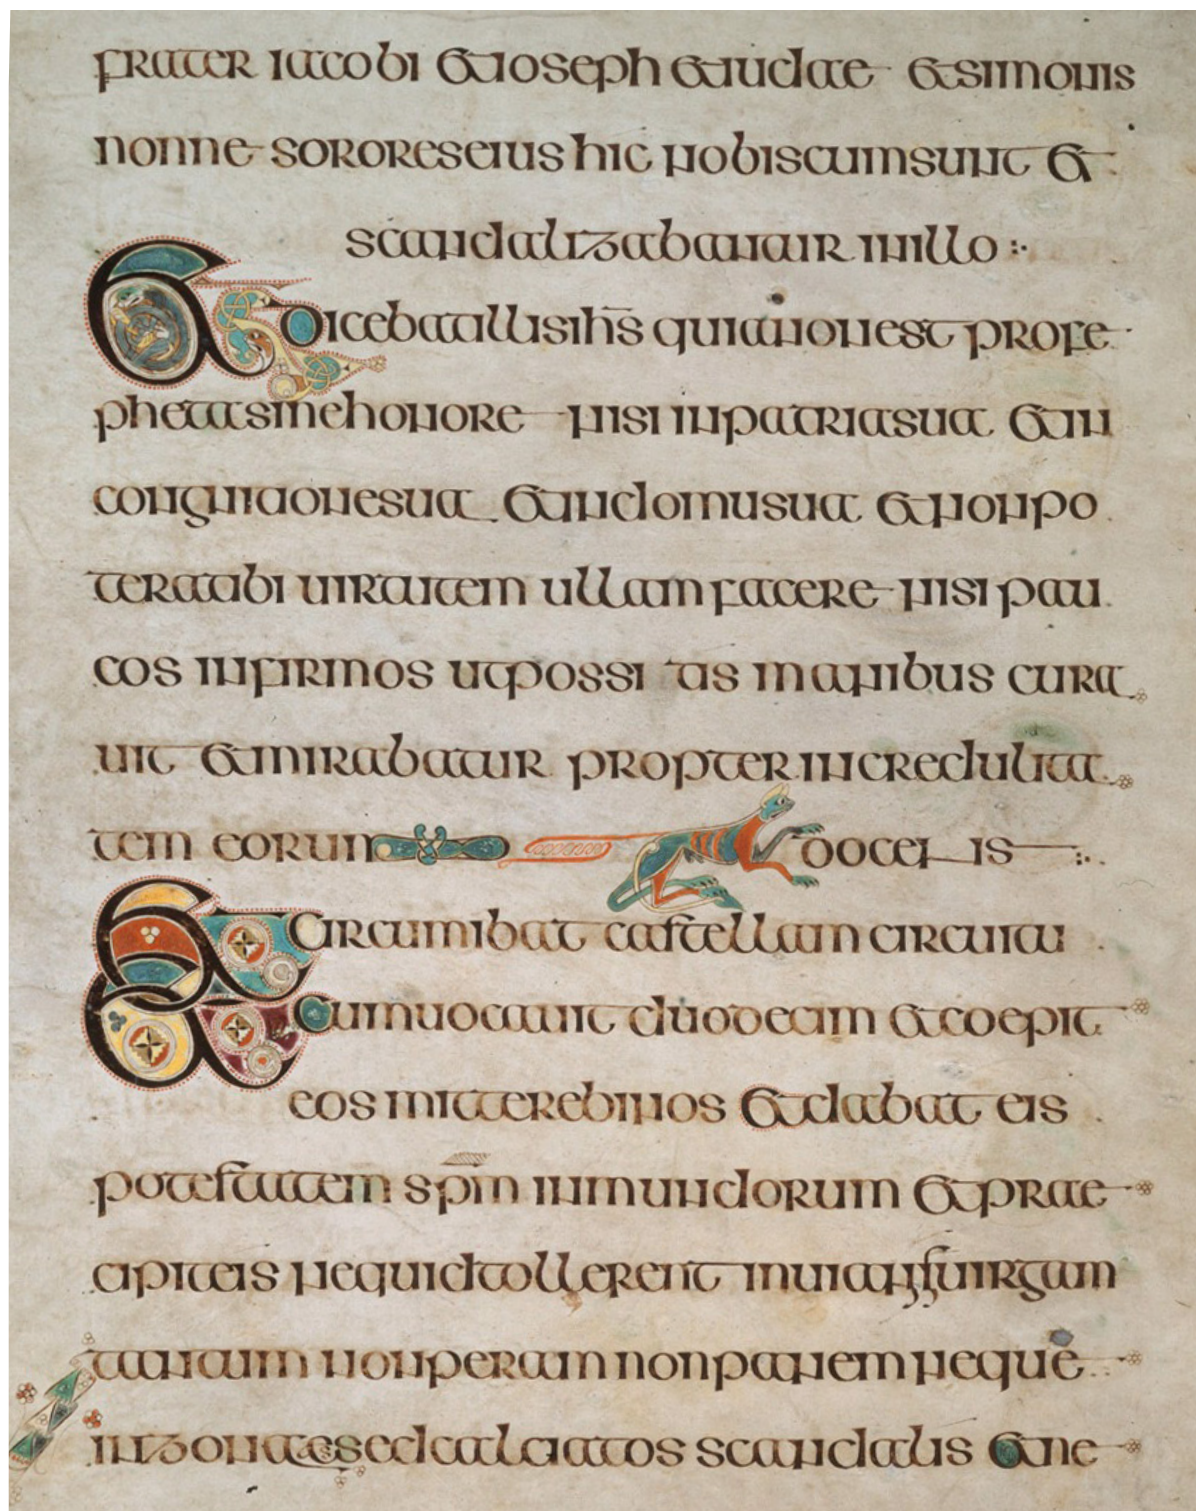 frater iacobi et ioseph et iudae et simonis
nonne sorores eius hic nobiscum sunt et
scandalizabantur in illo :·
Et dicebat illis ihs quia non est profe
pheta sine honore nisi in patria sua et in
congnatione sua et in domu sua et non po
terat ibi uirtutem ullam facere nisi pau
cos infirmos inpossitis manibus cura
uit et mirabatur propter incredulita
tem eorum docens
Et circumibat castella in circuitu
Et cum uocauit duodecim et coepit
eos mittere binos et dabat eis
potestatem spm inmundorum et prae
cipit eis ne quid tollerent in uia nisi uirgam
tantum non peram non panem neque
in zona aes sed calciatos scandalis et ne